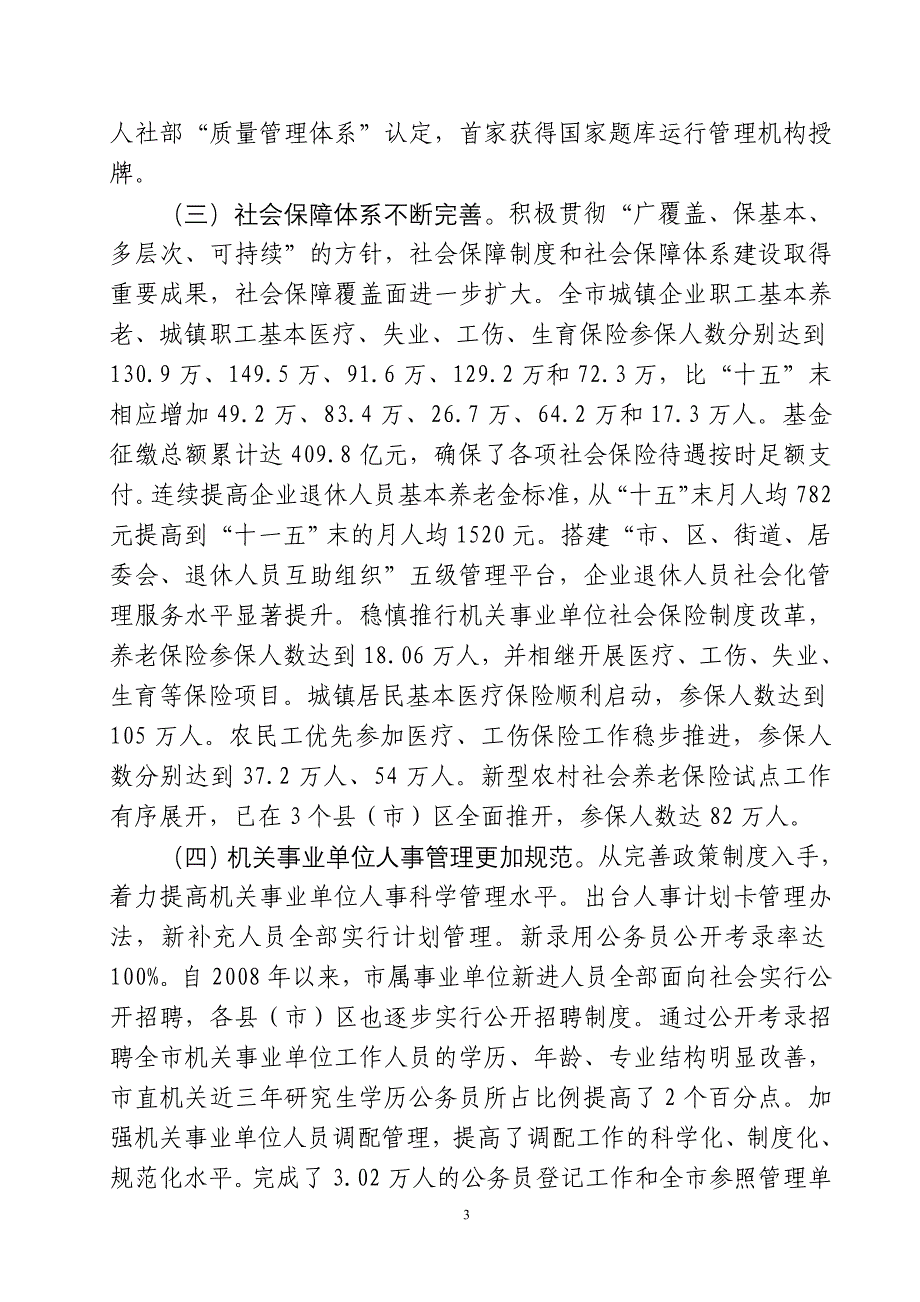 人社部“质量管理体系”认定，首家获得国家题库运行管理机构授
牌。
（三）社会保障体系不断完善。积极贯彻“广覆盖、保基本、
多层次、可持续”的方针，社会保障制度和社会保障体系建设取得
重要成果，社会保障覆盖面进一步扩大。全市城镇企业职工基本养
老、城镇职工基本医疗、失业、工伤、生育保险参保人数分别达到
130.9 万、149.5 万、91.6 万、129.2 万和 72.3 万，比“十五”末
相应增加 49.2 万、83.4 万、26.7 万、64.2 万和 17.3 万人。基金
征缴总额累计达 409.8 亿元，确保了各项社会保险待遇按时足额支
付。连续提高企业退休人员基本养老金标准，从“十五”末月人均 782
元提高到“十一五”末的月人均 1520 元。搭建“市、区、街道、居
委会、退休人员互助组织”五级管理平台，企业退休人员社会化管
理服务水平显著提升。稳慎推行机关事业单位社会保险制度改革，
养老保险参保人数达到 18.06 万人，并相继开展医疗、工伤、失业、
生育等保险项目。城镇居民基本医疗保险顺利启动，参保人数达到
105 万人。农民工优先参加医疗、工伤保险工作稳步推进，参保人
数分别达到 37.2 万人、54 万人。新型农村社会养老保险试点工作
有序展开，已在 3 个县（市）区全面推开，参保人数达 82 万人。
（四）机关事业单位人事管理更加规范。从完善政策制度入手，
着力提高机关事业单位人事科学管理水平。出台人事计划卡管理办
法，新补充人员全部实行计划管理。新录用公务员公开考录率达
100%。自 2008 年以来，市属事业单位新进人员全部面向社会实行公
开招聘，各县（市）区也逐步实行公开招聘制度。通过公开考录招
聘全市机关事业单位工作人员的学历、年龄、专业结构明显改善，
市直机关近三年研究生学历公务员所占比例提高了 2 个百分点。加
强机关事业单位人员调配管理，提高了调配工作的科学化、制度化、
规范化水平。完成了 3.02 万人的公务员登记工作和全市参照管理单
3